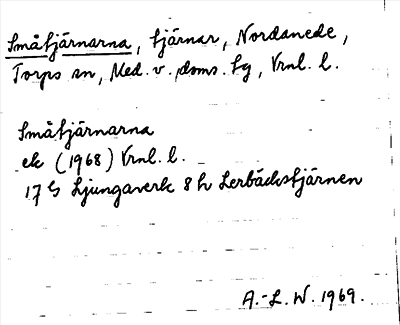 Småtjärnarna, tjärnar, Nordanede,
Torps sn, Med. v. doms. tg, Vrnl. l.
Småtjärnarna
ek (1968) Vrnl. l.
17 G Ljungaverk 8 h Lerbäckstjärnen
A.-L. W. 1969.